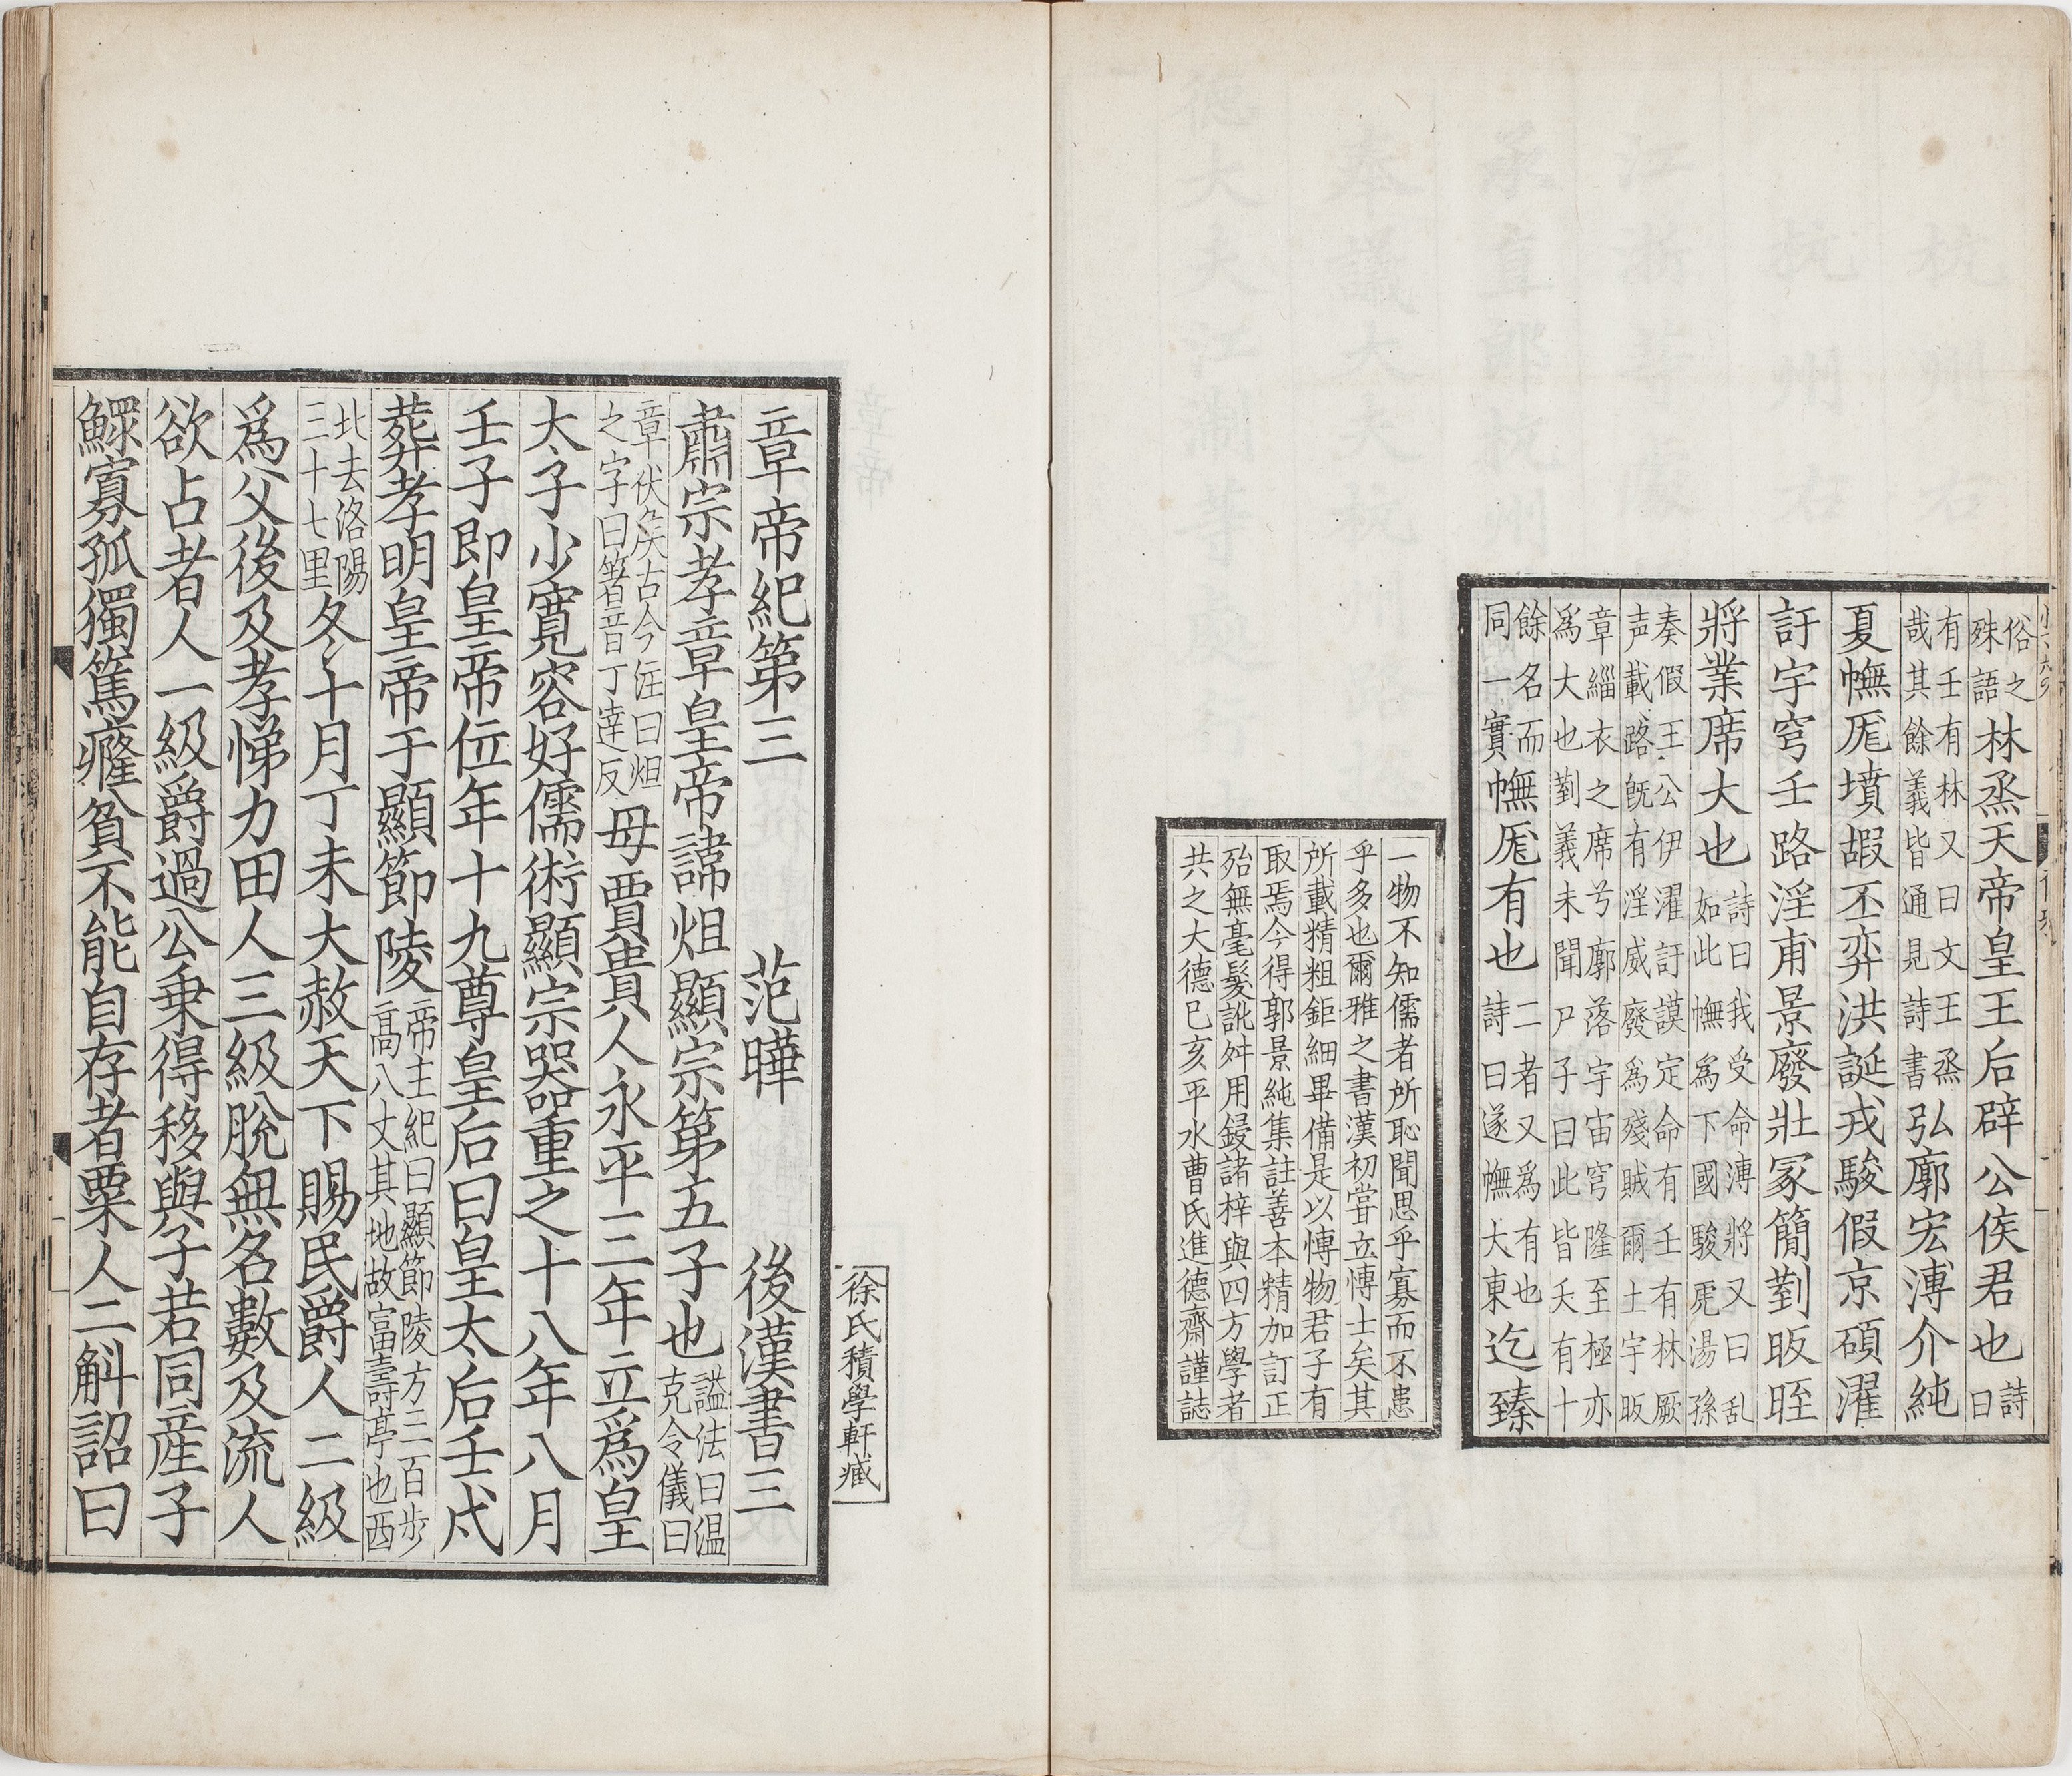 俗之
殊語
林烝天帝皇王后辟公侯君也
詩曰
有壬有林又曰文王烝
哉其餘義皆通見詩書
弘廓宏溥介純
夏幠厖墳嘏丕弈洪誕戎駿假京碩濯
訏宇穹壬路淫甫景廢壯冢簡箌昄晊
將業席大也
詩曰我受命溥將又曰乱
如此幠為下國駿厖湯孫
奏假王公伊濯訏謨定命有壬有林厥
声載路旣有淫威廢為殘賊爾土宇昄
章緇衣之席兮廓落宇宙穹隆至極亦
為大也箌義未聞尸子曰此皆大有十
餘名而
同一實
幠厖有也
二者又為有也
詩曰遂幠大東
迄臻
一物不知儒者所恥聞思乎寡而不患
乎多也爾雅之書漢初嘗立博士矣其
所載精粗鉅細畢備是以博物君子有
取焉今得郭景純集註善本精加訂正
殆無毫髮訛舛用鋟諸梓與四方學者
共之大德己亥平水曹氏進德齋謹誌
徐氏積學軒藏
章帝紀第三 范曄 後漢書三
肅宗孝章皇帝諱炟顯宗第五子也
謚法曰温
克令儀曰
章伏侯古今注曰炟
之字曰著音丁達反
母賈貴人永平三年立為皇
太子少寬容好儒術顯宗器重之十八年八月
壬子即皇帝位年十九尊皇后曰皇太后壬戌
葬孝明皇帝于顯節陵
帝王紀曰顯節陵方三百步
高八丈其地故富壽亭也西
北去洛陽
三十七里
冬十月丁未大赦天下賜民爵人二級
爲父後及孝悌力田人三級脫無名數及流人
欲占者人一級爵過公乗得移與子若同産子
鰥寡孤獨篤癃貧不能自存者粟人三斛詔曰